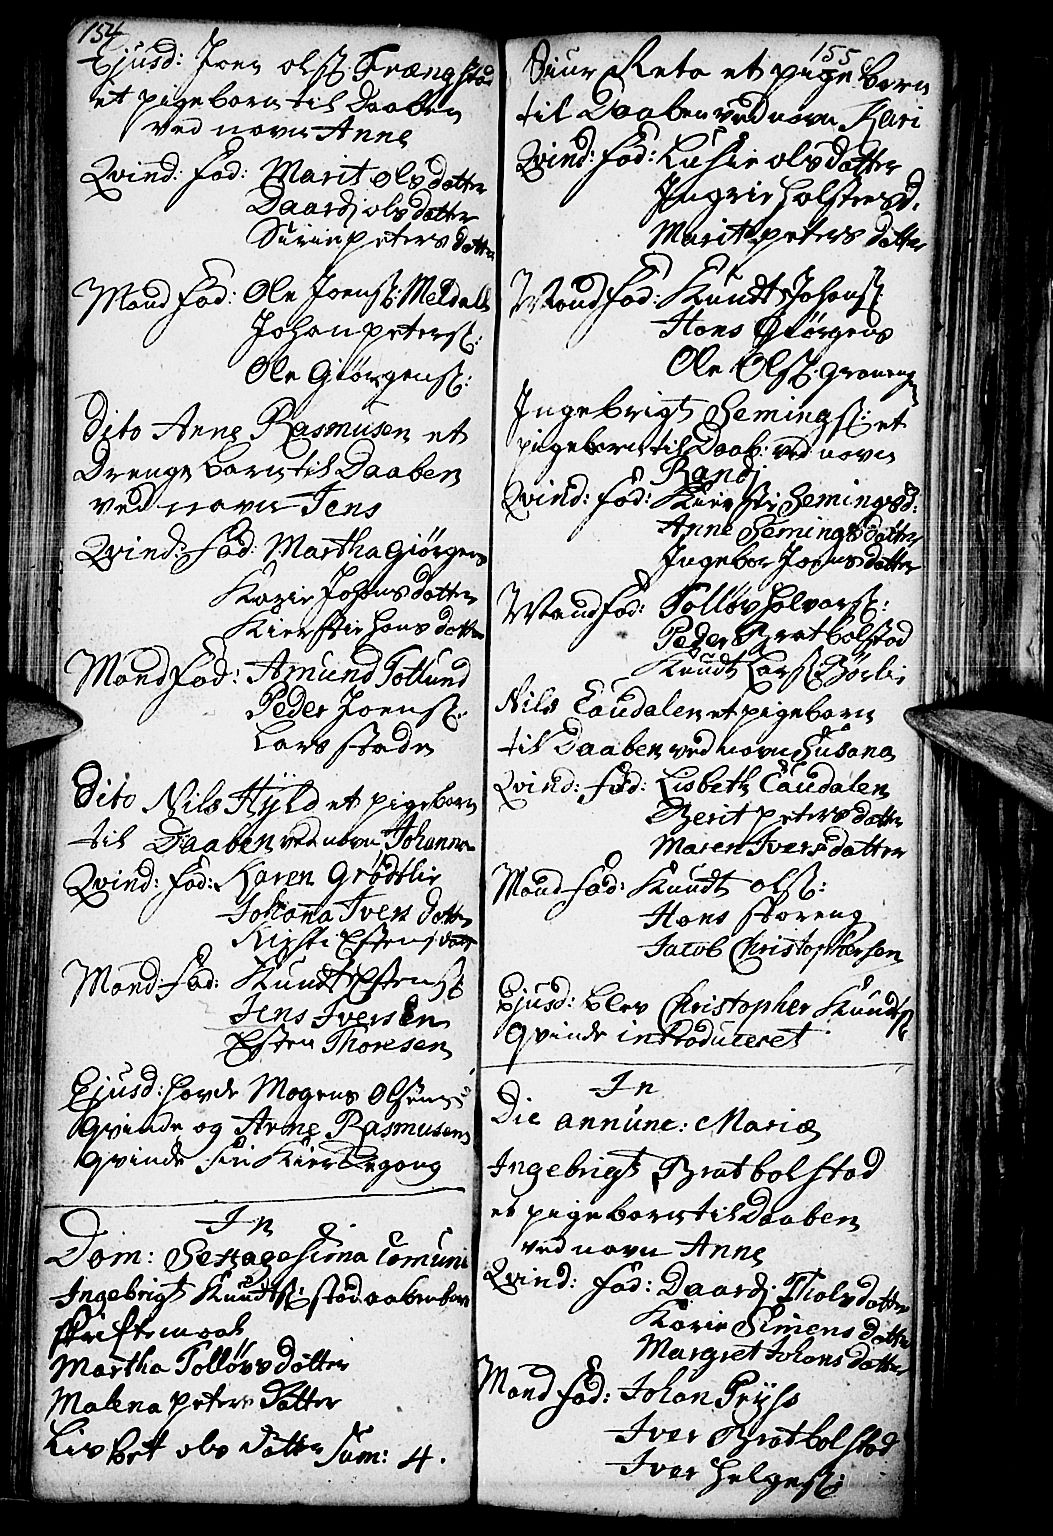 154
Ejusd: Joen olsß Frængstad
et pigebarn til Daaben
ved navn Anne
Qvind: fad: Marit olsdatter
Daardj olsdatter
Siri petersdatter
Mand fad: Ole Joensß: Meldals
Johan petersß:
Ole Giörgensß:
Dito Anne Rasmusen et
Drenge barn til Daaben
ved navn Jens
Qvind: fad: Martha Giörgens
Karie Johnsdatter
Kierstie hansdatter
Mand fad: Amund Tollund
Peder Joensß:
Lars stade
Dito Nils Hyld et pigebarn
til Daaben ved navn Johanna
Qvind: fad: Karen Grödtlie
Johana Ivers datter
Kirsti Estens datt
Mand fad: Knudt Estensß
Jens Iversen
Esten Thoresen
Ejusd: havde Mogens Olsens
qvinde og Arne Rasmusens
qvinde sin Kierkegang
In
Dom: Sexagesima Comuni
Ingebrigt Knudtsß: stod aabenbare
skriftemaal
Martha Tollövsdatter
Malena peters datter
Lisbet ols datter Sum: 4.
155
Siur Reta et pigebarn
til Daaben ved navn Kari
Qvind: fad: Lusie olsdatter
Ingrie holstersd:
Marit petersdatter
Mand fad: Knudt Johansß:
Hans Giörgens
Ole Olsß: graneng
Ingebrigt Hemingsß: et
pigebarn til Daab: ved navn
Randj
Qvind: fad: Kierstie Hemingsd:
Anne Hemingsdatter
Ingebor Joensdatter
Mand fad: Tollöv halvorsß:
Peder Bratbolstad
Knudt Larsß Börli
Nils Caudalen et pigebarn
til Daaben ved navn Susana
Qvind: fad: Lisbeth Caudalen
Berit petersdatter
Maren Iversdatter
Mand fad: Knudt olsß:
Hans storeng
Jacob Christophersen
Ejusd: blev Christopher Knudtsß
qvinde introduceret
In
Die annunc: Mariæ
Ingebrigt Bratbolstad
et pigebarn til Daaben
ved navn Anne
Qvind: fad: Daardj Tholsdatter
Karie Simens datter
Margret Johans datter
Mand fad: Johan Pryss
Iver Bratbolstad
Iver helgesß: